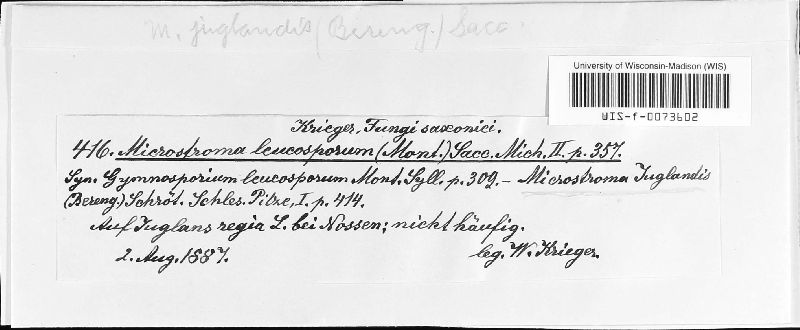 M. juglandis (Bereng.) Sacc.
University of Wisconsin-Madison (WIS)
WIS-f-0073602
Krieger, Fungi saxonici.
416. Microstroma leucosporum (Mont.) Sacc. Mich. II. p. 357.
Syn. Gymnosporium leucosporum Mont. Syll. p. 309. – Microstroma Juglandis
(Bereng.) Schröt. Schles. Pilze, I. p. 414.
Auf Juglans regia L. bei Nossen; nicht häufig.
2. Aug. 1887.
leg. W. Krieger.